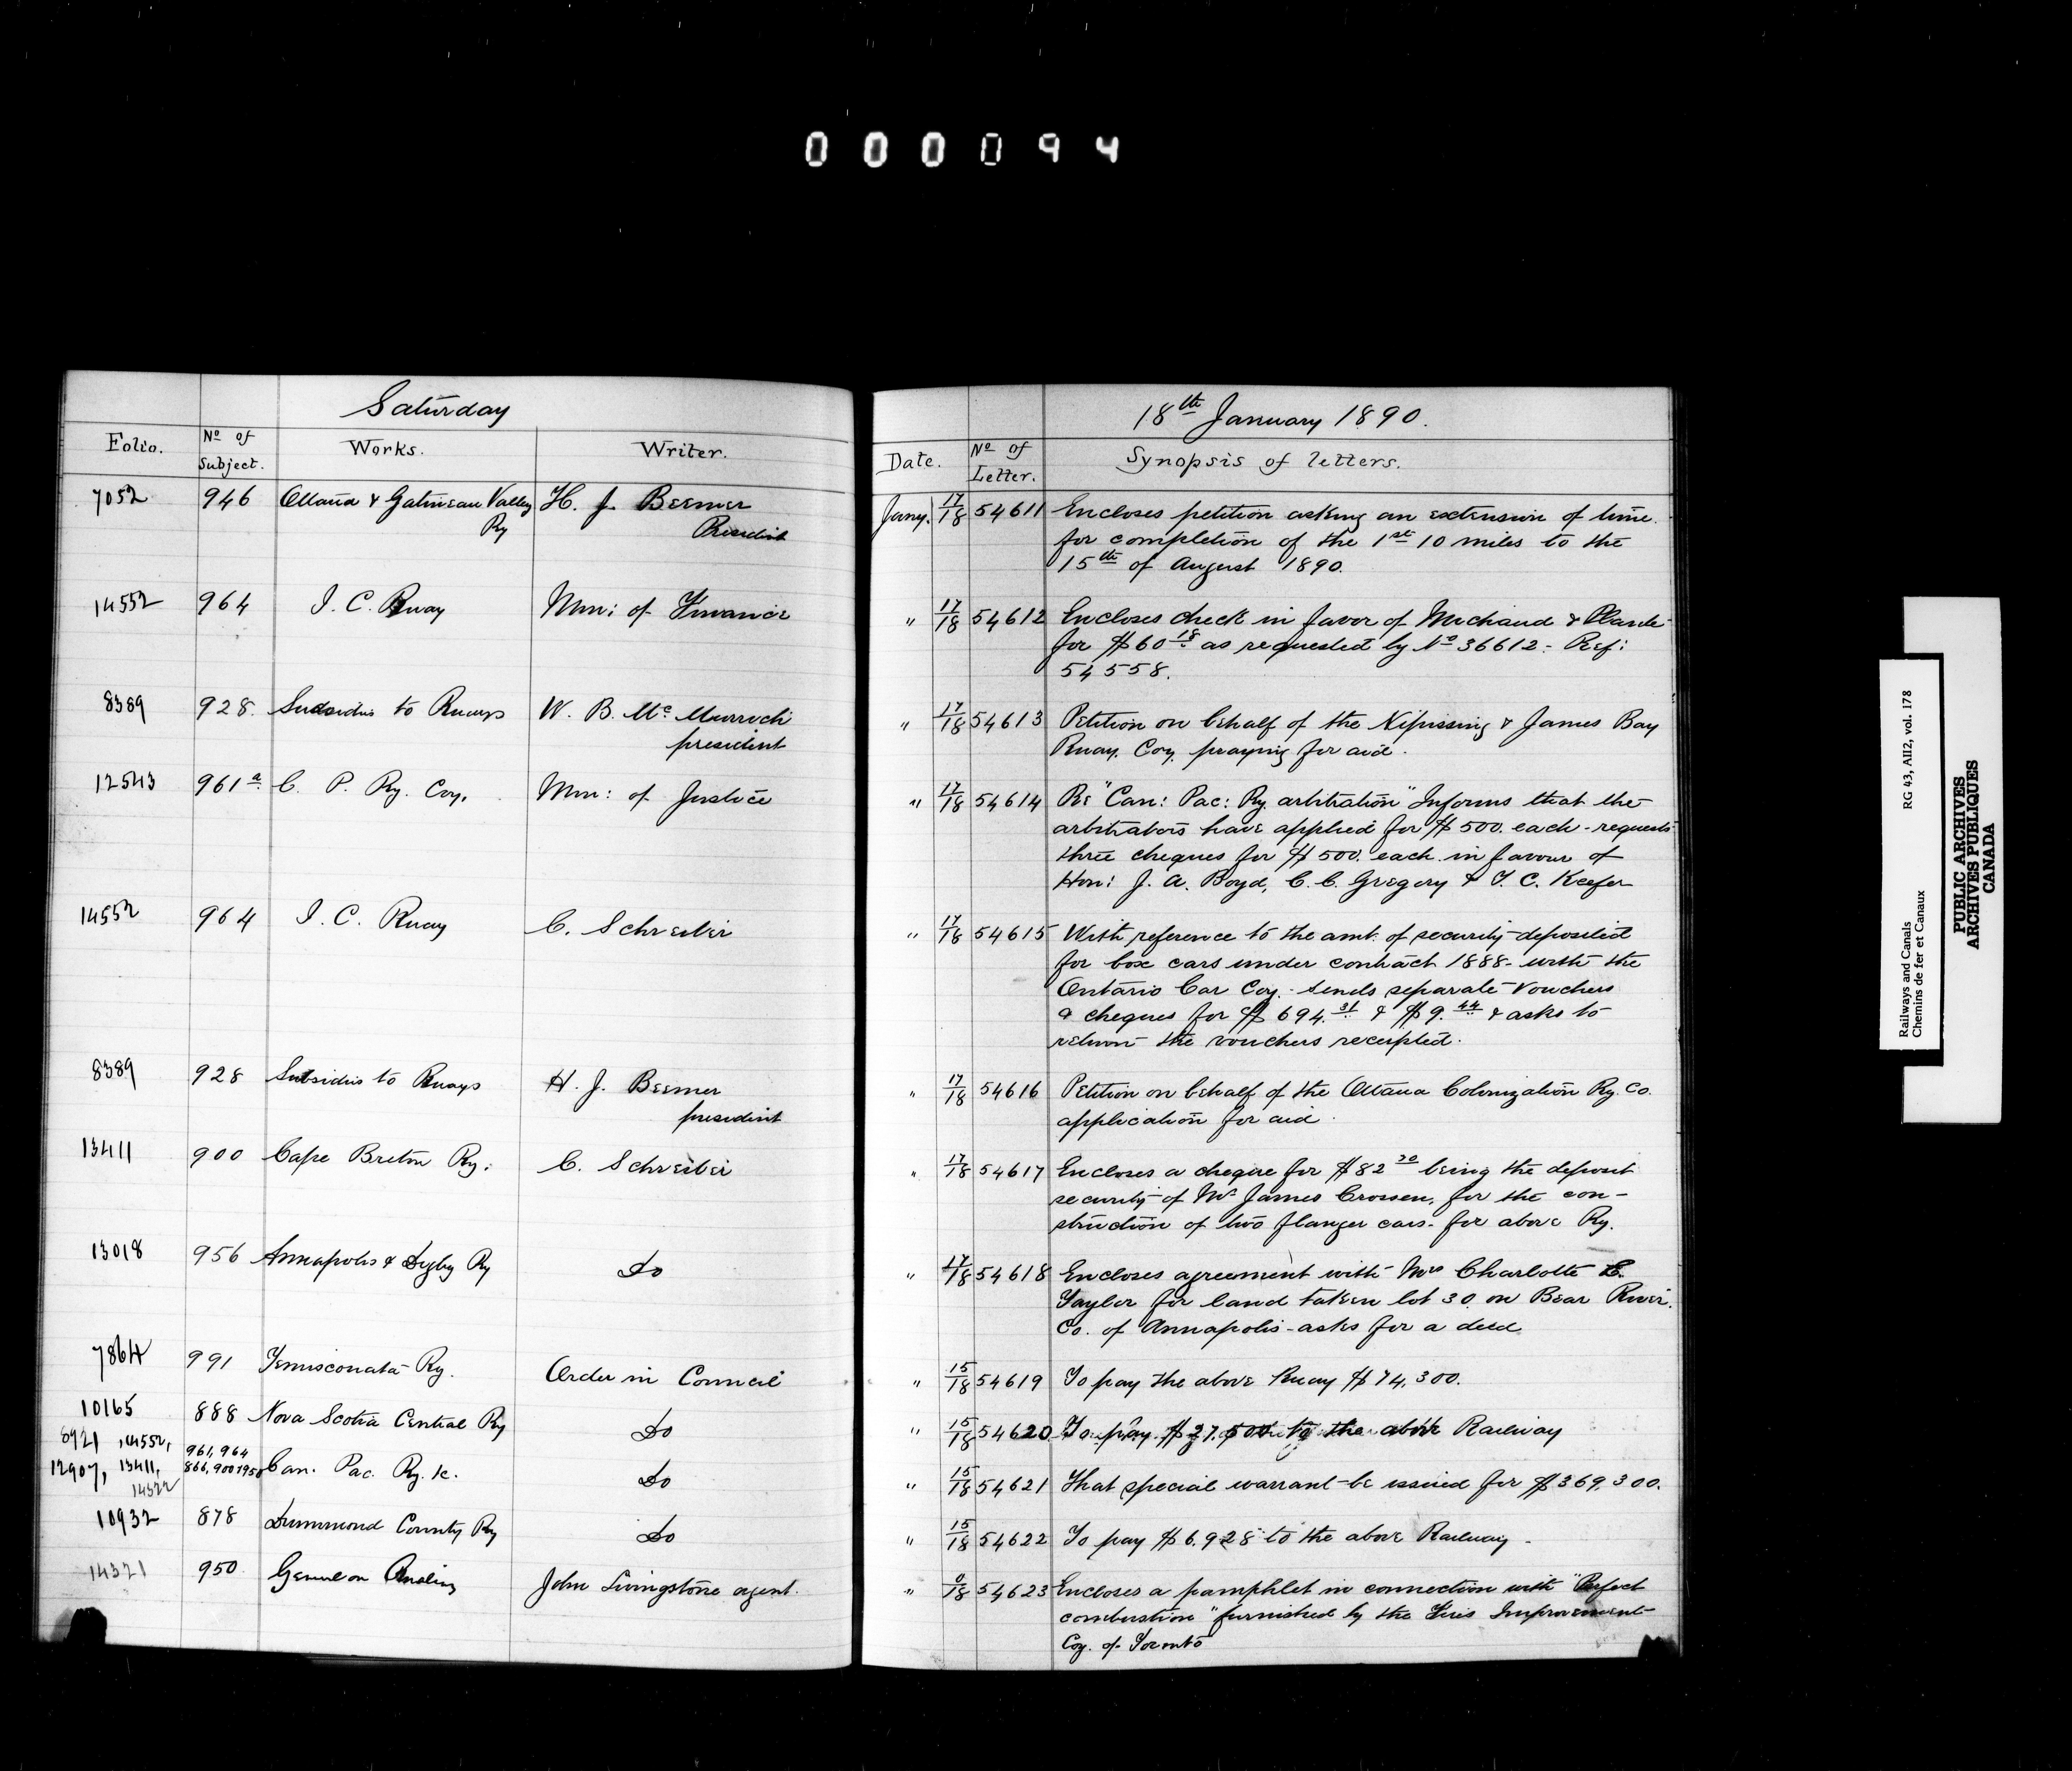 000094
Saturday
Folio. No of Subject. Works. Writer.
7052 946 Ottawa & Gatineau Valley Ry H. J. Beemer President
14552 964 I. C. Rway Min: of Finance
8389 928. Subsidies to Rways W. B. Mc Murrich president
12543 961a C. P. Ry. Coy. Min: of Justice
14552 964 I. C. Rway C. Schreiber
8389 928 Subsidies to Rways H. J. Beemer president
13411 900 Cape Breton Ry: C. Schreiber
13018 956 Annapolis & Digby Ry Do
7864 991 Temisconata Ry. Order in Council
10165 888 Nova Scotia Central Ry Do
8921, 14552, 961, 964
12907, 13411, 866, 900 Can. Pac. Ry. &c. Do
14322
10932 878 Drummond County Ry Do
14321 950 General on John Livingstone agent.
18th January 1890.
Date. No of Letter. Synopsis of letters.
Jany. 17/18 54611 Encloses petition asking an extension of time
for completion of the 1st 10 miles to the
15th of August 1890.
" 17/18 54612 Encloses check in favor of Michaud &
for $60 18 as requested by No 36612. Ref:
54558.
" 17/18 54613 Petition on behalf of the Nipissing & James Bay
Rway. Coy. praying for aid.
" 17/18 54614 Re "Can: Pac: Ry. arbitration" Informs that the
arbitrators have applied for $500. each - requests
three cheques for $500. each in favour of
Hon: J. A. Boyd, C. C. Gregory & T. C. Keefer
" 17/18 54615 With reference to the amt. of security deposited
for box cars under contract 1888 - with the
Ontario Car Coy. - sends separate vouchers
& cheques for $694.31 & $9.44 & asks to
return the vouchers receipted.
" 17/18 54616 Petition on behalf of the Ottawa Colonization Ry. Co.
application for aid.
" 17/18 54617 Encloses a cheque for $82 20 being the deposit
security of Mr James Crossen, for the con-
struction of two flanger cars - for above Ry.
" 17/18 54618 Encloses agreement with Mrs Charlotte E.
Taylor for land taken lot 30. on Bear River.
Co. of Annapolis - asks for a deed.
" 15/18 54619 To pay the above Rway $74,300.
" 15/18 54620 To pay $27,500 to the above Railway
" 15/18 54621 That special warrant be issued for $369,300.
" 15/18 54622 To pay $6,928 to the above Railway -
" 0/18 54623 Encloses a pamphlet in connection with "Perfect
combustion" furnished by the Improvement
Coy. of Toronto
Railways and Canals RG 43, AII2, vol. 178
Chemins de fer et Canaux
PUBLIC ARCHIVES
ARCHIVES PUBLIQUES
CANADA